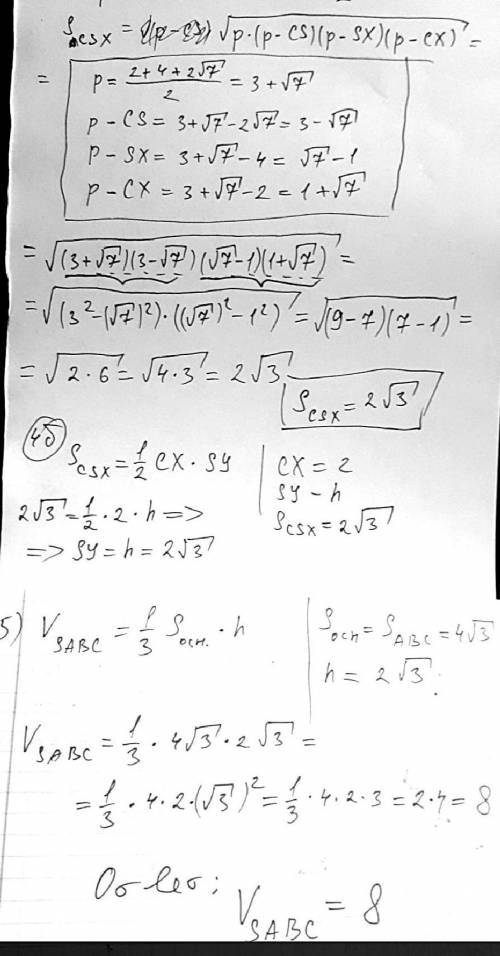 S_CSX = √(p·(p-CS)(p-SX)(p-CX)) =
= p = (2+4+2√7)/2 = 3+√7
p - CS = 3+√7-2√7 = 3-√7
p - SX = 3+√7-4 = √7-1
p - CX = 3+√7-2 = 1+√7
= √((3+√7)(3-√7)(√7-1)(1+√7)) =
= √((3²-(√7)²)·((√7)²-1²)) = √((9-7)(7-1)) =
= √(2·6) = √(4·3) = 2√3
S_CSX = 2√3
4б
S_CSX = 1/2 CX · SY
2√3 = 1/2 · 2 · h =>
=> SY = h = 2√3
CX = 2
SY - h
S_CSX = 2√3
5) V_SABC = 1/3 S_осн. · h
S_осн = S_ABC = 4√3
h = 2√3.
V_SABC = 1/3 · 4√3 · 2√3 =
= 1/3 · 4 · 2 · (√3)² = 1/3 · 4 · 2 · 3 = 2·4 = 8
Ответ: V_SABC = 8